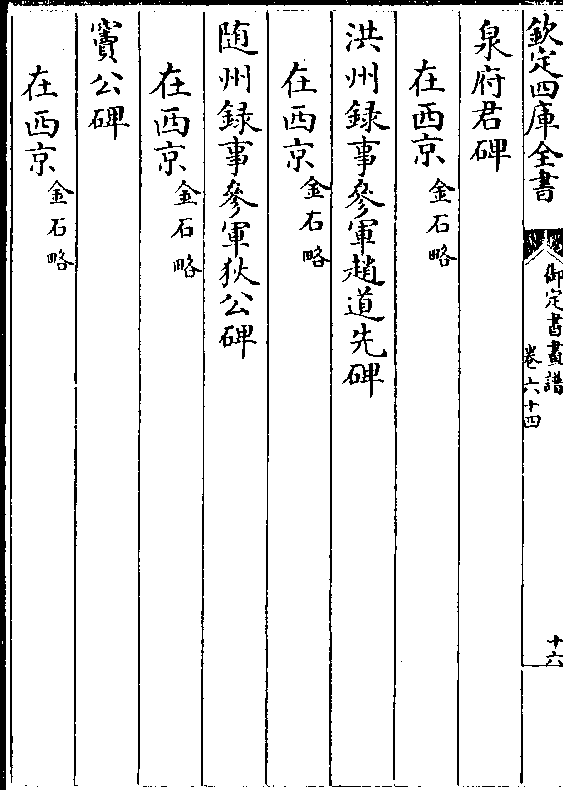 欽定四庫全書
御定書畫譜
卷六十四
十六
泉府君碑
在西京金石略
洪州録事參軍趙道先碑
在西京金石略
随州録事參軍狄公碑
在西京金石略
竇公碑
在西京金石略